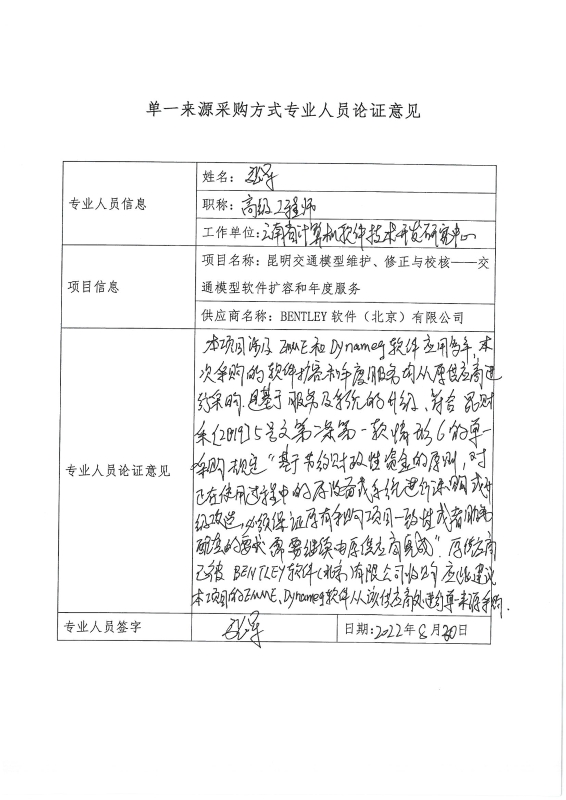 单一来源采购方式专业人员论证意见
专业人员信息
姓名：
职称：高级工程师
工作单位：云南省计算机软件技术开发研究中心
项目信息
项目名称：昆明交通模型维护、修正与校核——交
通模型软件扩容和年度服务
供应商名称：BENTLEY 软件（北京）有限公司
专业人员论证意见
本项目涉及EMME和Dynameq软件应用多年，本
次采购的软件扩容和年度服务均从原供应商进
行采购，是基于服务及系统的升级、符合 财
采[2019]5号文第二条第一款情形6的单一
采购规定“基于节约财政性资金的原则，对
已在使用过程中的原设备或系统进行添购或升
级改造，必须保证原有采购项目一致性或者服务
配套的要求需要继续由原供应商完成”。原供应商
已被 BENTLEY软件（北京）有限公司收购 建议
本项目的EMME、Dynameq软件从该供应商处进行单一来源采购．
专业人员签字
日期：2022年8月30日